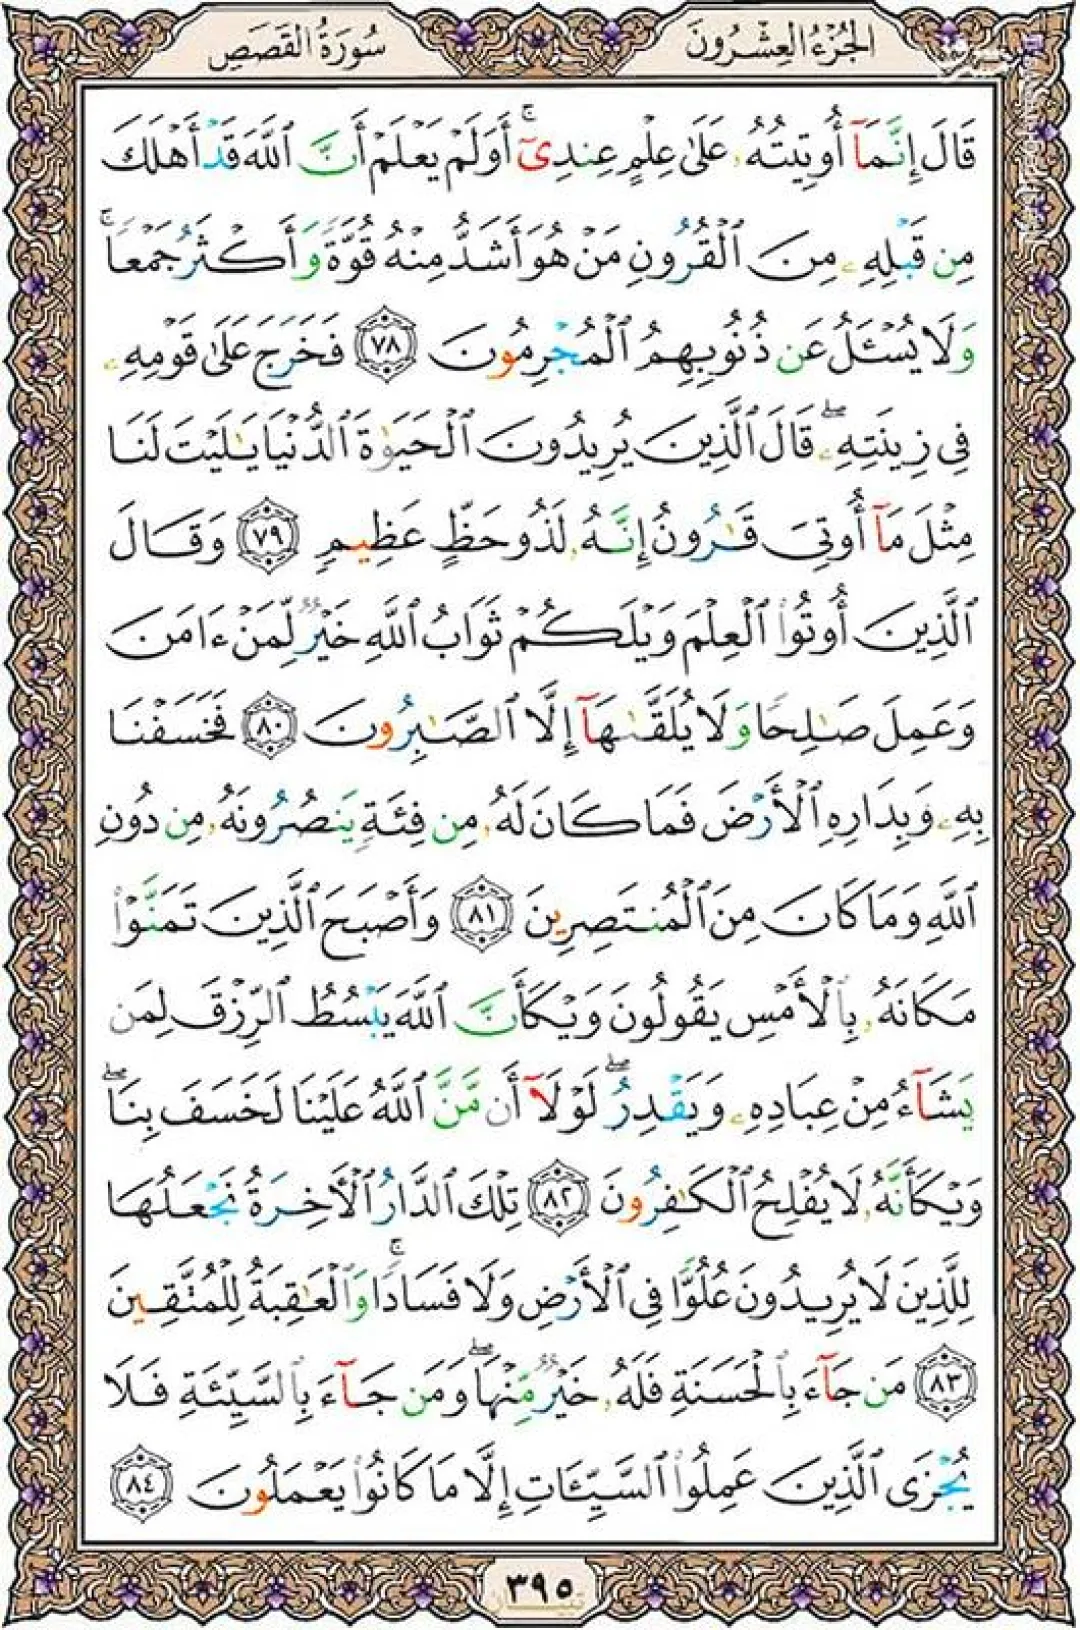 الجُزْءُ العِشْرُونَ
سُورَةُ القَصَصِ
قَالَ إِنَّمَآ أُوتِيتُهُۥ عَلَىٰ عِلْمٍ عِندِىٓ ۚ أَوَلَمْ يَعْلَمْ أَنَّ ٱللَّهَ قَدْ أَهْلَكَ
مِن قَبْلِهِۦ مِنَ ٱلْقُرُونِ مَنْ هُوَ أَشَدُّ مِنْهُ قُوَّةً وَأَكْثَرُ جَمْعًا ۚ
وَلَا يُسْـَٔلُ عَن ذُنُوبِهِمُ ٱلْمُجْرِمُونَ ٧٨ فَخَرَجَ عَلَىٰ قَوْمِهِۦ
فِى زِينَتِهِۦ ۖ قَالَ ٱلَّذِينَ يُرِيدُونَ ٱلْحَيَوٰةَ ٱلدُّنْيَا يَـٰلَيْتَ لَنَا
مِثْلَ مَآ أُوتِىَ قَـٰرُونُ إِنَّهُۥ لَذُو حَظٍّ عَظِيمٍ ٧٩ وَقَالَ
ٱلَّذِينَ أُوتُوا۟ ٱلْعِلْمَ وَيْلَكُمْ ثَوَابُ ٱللَّهِ خَيْرٌ لِّمَنْ ءَامَنَ
وَعَمِلَ صَـٰلِحًا وَلَا يُلَقَّىٰهَآ إِلَّا ٱلصَّـٰبِرُونَ ٨٠ فَخَسَفْنَا
بِهِۦ وَبِدَارِهِ ٱلْأَرْضَ فَمَا كَانَ لَهُۥ مِن فِئَةٍ يَنصُرُونَهُۥ مِن دُونِ
ٱللَّهِ وَمَا كَانَ مِنَ ٱلْمُنتَصِرِينَ ٨١ وَأَصْبَحَ ٱلَّذِينَ تَمَنَّوْا۟
مَكَانَهُۥ بِٱلْأَمْسِ يَقُولُونَ وَيْكَأَنَّ ٱللَّهَ يَبْسُطُ ٱلرِّزْقَ لِمَن
يَشَآءُ مِنْ عِبَادِهِۦ وَيَقْدِرُ ۖ لَوْلَآ أَن مَّنَّ ٱللَّهُ عَلَيْنَا لَخَسَفَ بِنَا ۖ
وَيْكَأَنَّهُۥ لَا يُفْلِحُ ٱلْكَـٰفِرُونَ ٨٢ تِلْكَ ٱلدَّارُ ٱلْـَٔاخِرَةُ نَجْعَلُهَا
لِلَّذِينَ لَا يُرِيدُونَ عُلُوًّا فِى ٱلْأَرْضِ وَلَا فَسَادًا ۚ وَٱلْعَـٰقِبَةُ لِلْمُتَّقِينَ
٨٣ مَن جَآءَ بِٱلْحَسَنَةِ فَلَهُۥ خَيْرٌ مِّنْهَا ۖ وَمَن جَآءَ بِٱلسَّيِّئَةِ فَلَا
يُجْزَى ٱلَّذِينَ عَمِلُوا۟ ٱلسَّيِّـَٔاتِ إِلَّا مَا كَانُوا۟ يَعْمَلُونَ ٨٤
٣٩٥